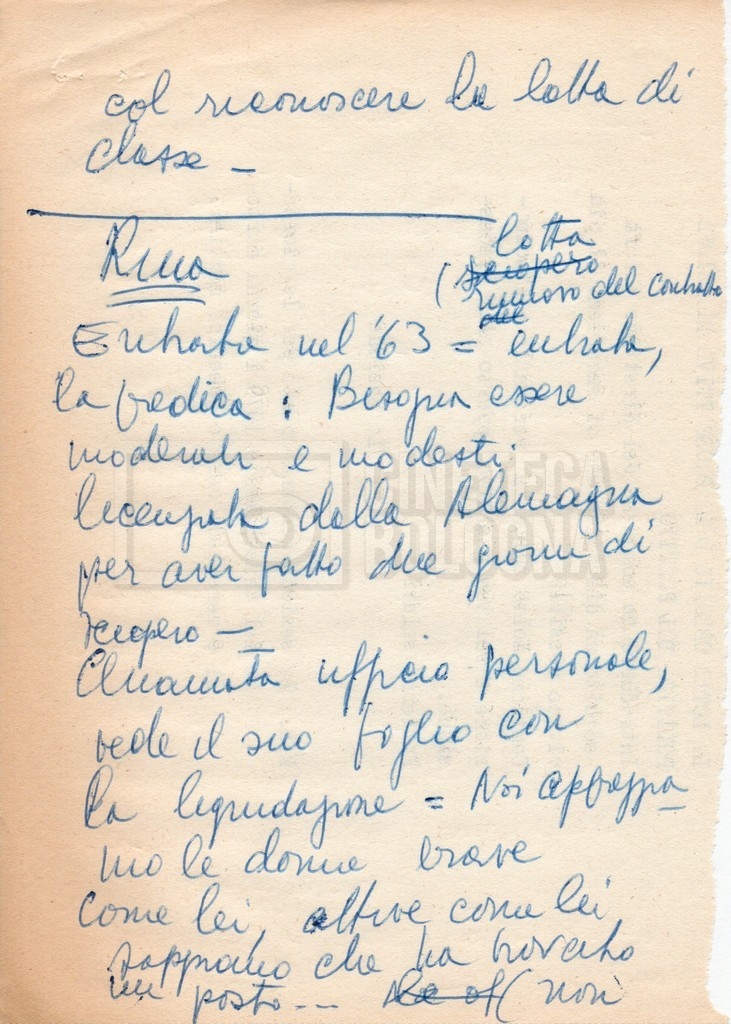 col riconoscere la lotta di
classe –
Rina
lotta
(sciopero
rinnovo del contratto
del
Entrata nel '63 = entrata,
la predica : Bisogna essere
moderati e modesti.
licenziata dalla Alemagna
per aver fatto due giorni di
sciopero –
Chiamata ufficio personale,
vede il suo foglio con
la liquidazione = Noi apprezza
mo le donne brave
come lei, attive come lei,
sappiamo che ha trovato
un posto... (non
CINETECA
BOLOGNA